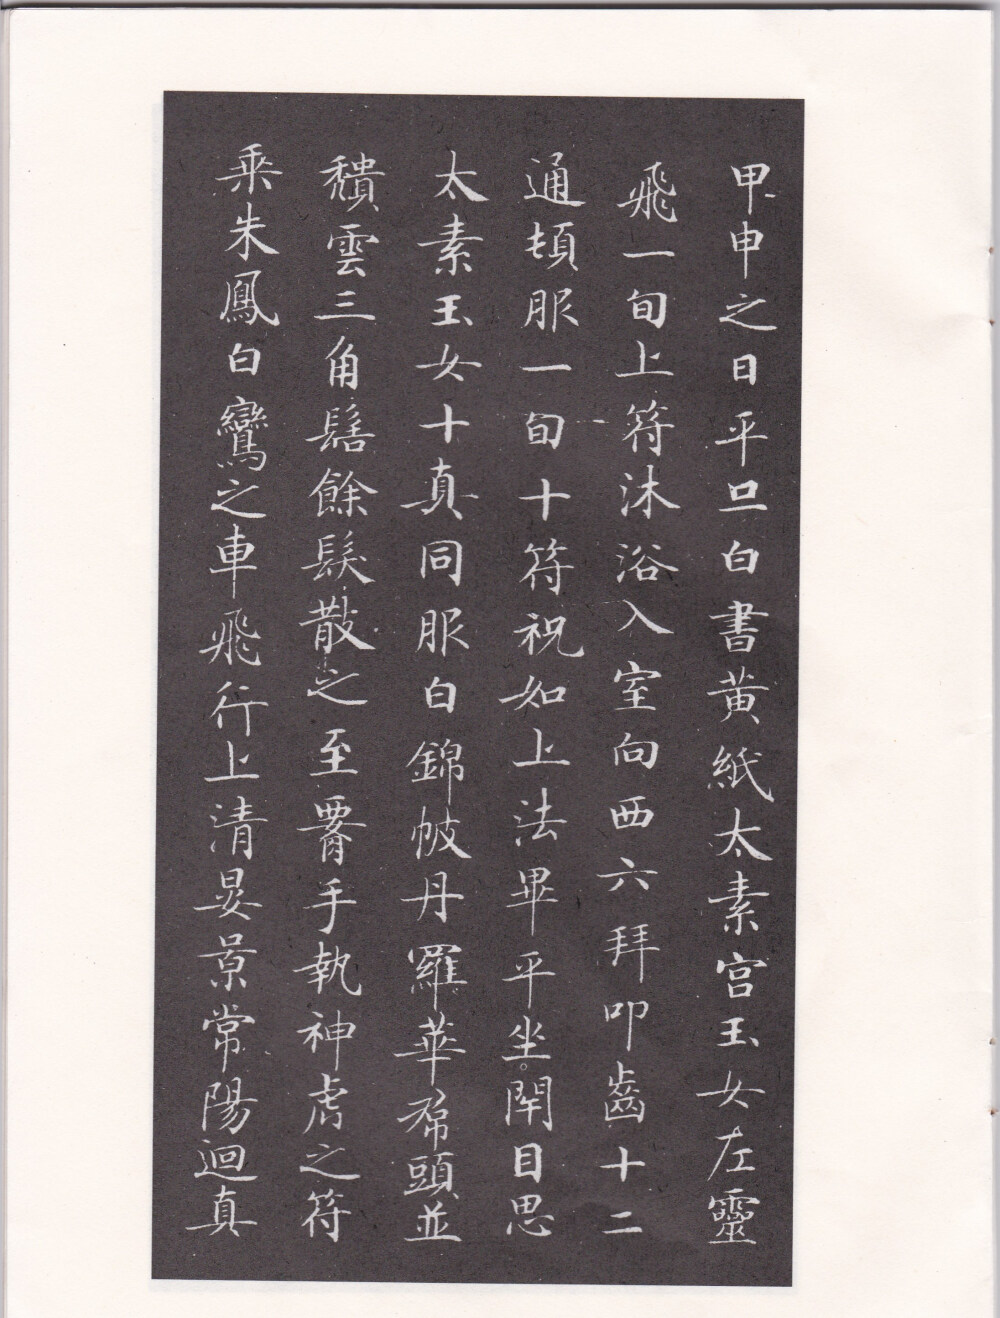 甲申之日平旦白書黃紙太素宮玉女左靈
飛一旬上符沐浴入室向西六拜叩齒十二
通頓服一旬十符祝如上法畢平坐閉目思
太素玉女十真同服白錦帔丹羅華帬頭並
頹雲三角髻餘髮散之至腰手執神虎之符
乘朱鳳白鸞之車飛行上清晏景常陽迴真